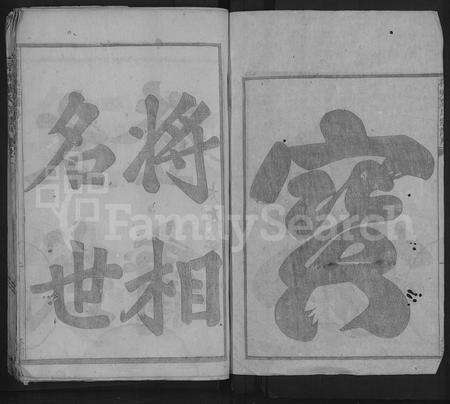 寶
將相
名世
FamilySearch